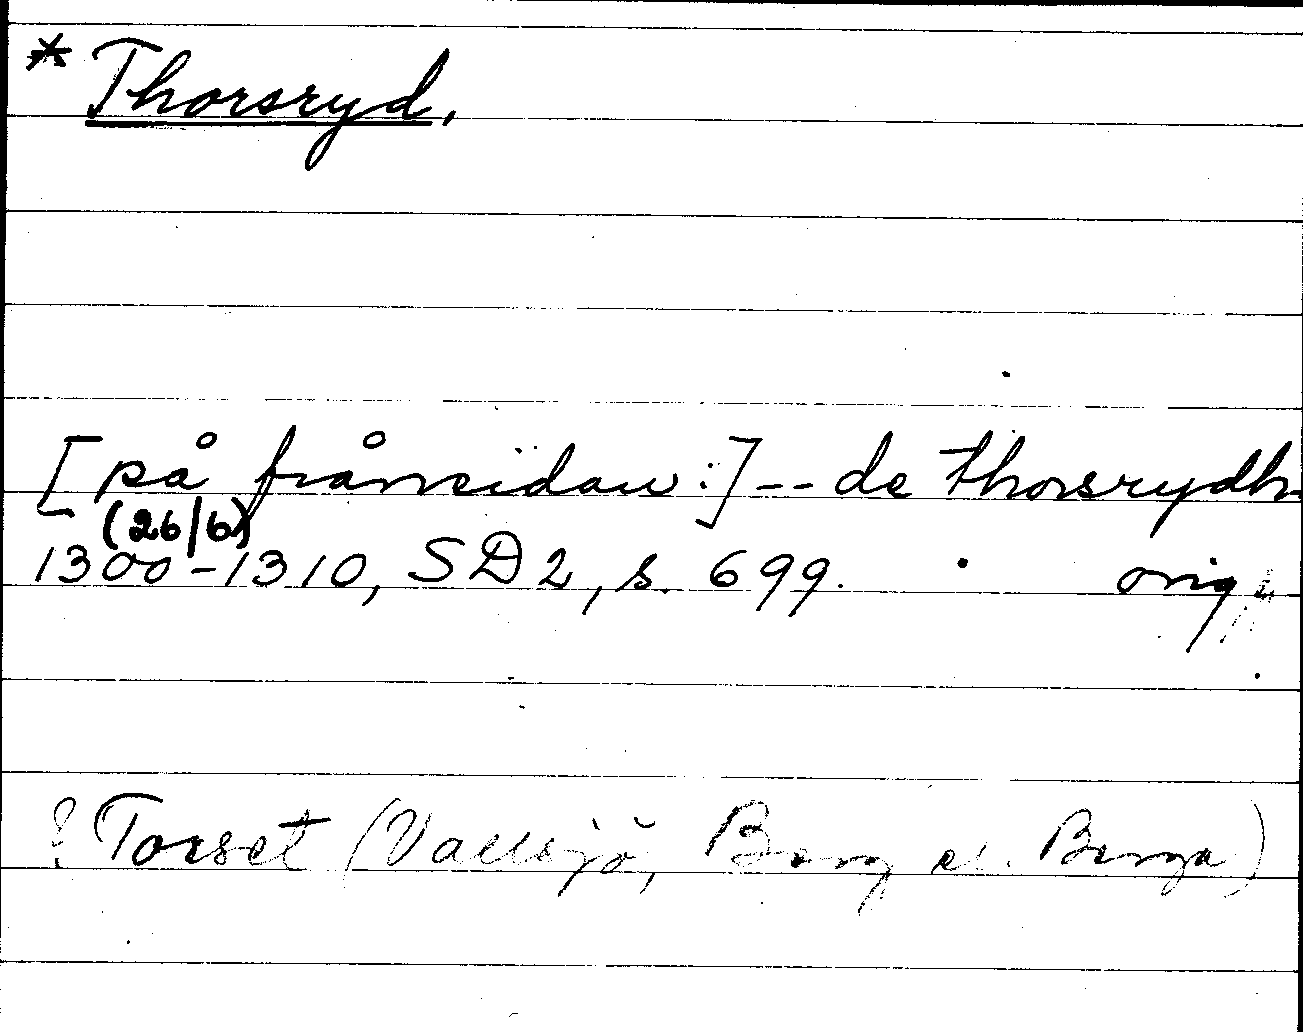 * Thorsryd.
[på frånsidan:] -- de thorsrydh
(26/6)
1300-1310, SD 2, s. 699. orig
? Torset (Vallsjö, Berg el. Berga)